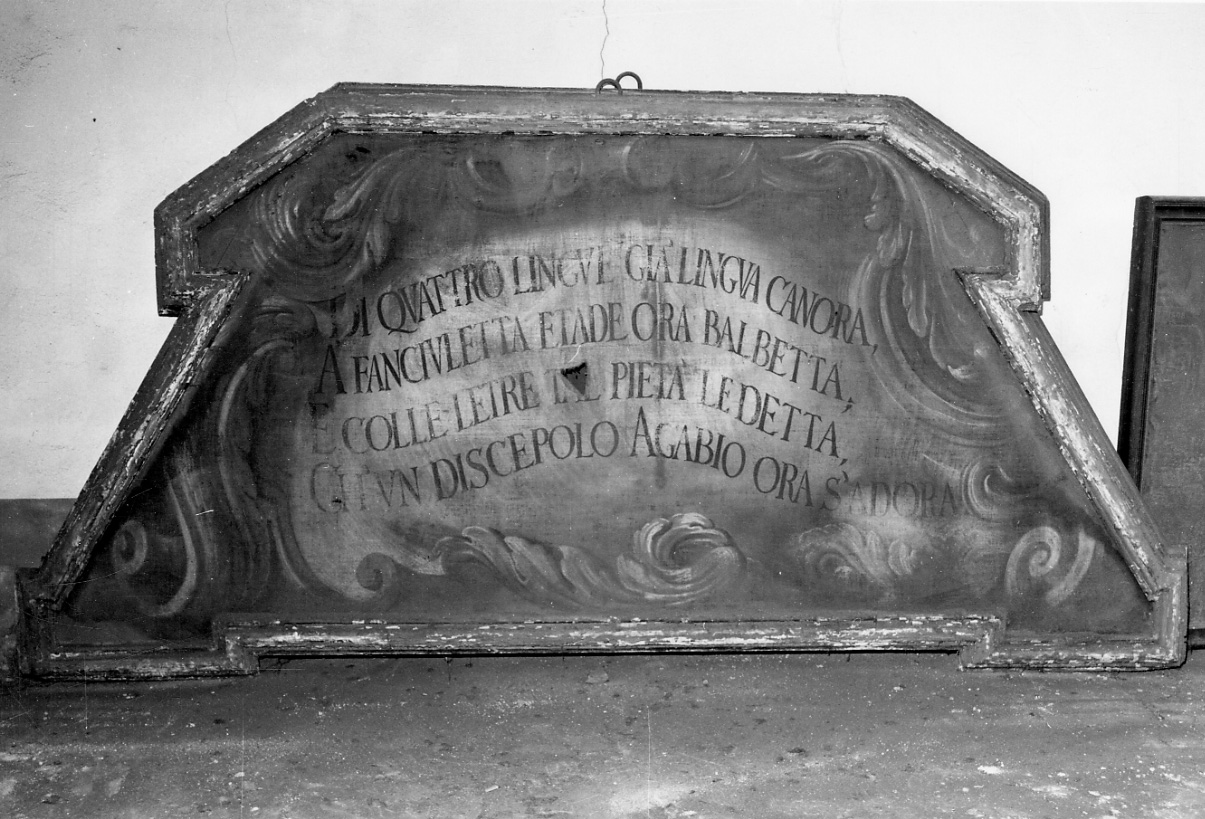 DI QVATTRO LINGVE GIÀ LINGVA CANORA,
A FANCIVLETTA ETADE ORA BALBETTA,
E COLLE LETRE PIETÀ LE DETTA,
CH'VN DISCEPOLO AGABIO ORA S'ADORA